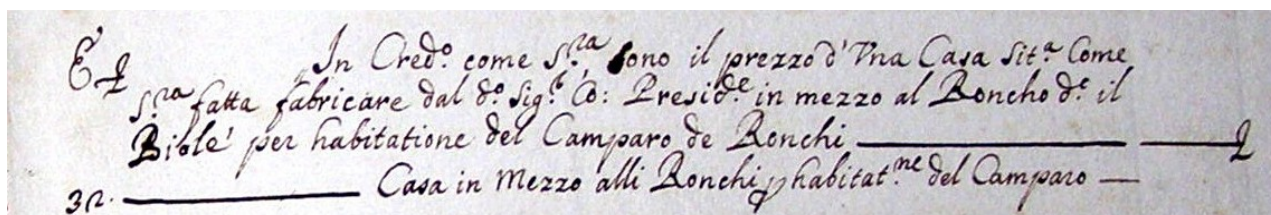 E £ In Cred.o come S.ra, sono il prezzo d'Vna Casa Sit.a Come
S.ra fatta fabricare dal d.o Sig.r Co: Presid.e in mezzo al Roncho d.e il
Biolé per habitatione del Camparo de Ronchi £
32. Casa in Mezzo alli Ronchi p habitat.ne del Camparo